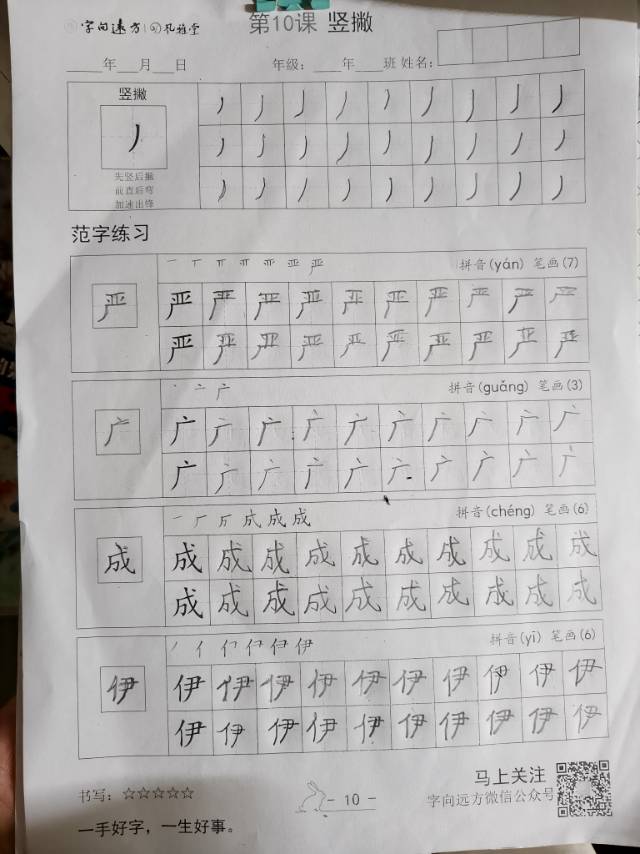 字向远方 孔雅堂
第10课 竖撇
____年___月___日 年级：____年____班 姓名：
竖撇
丿
先竖后撇
前直后弯
加速出锋
丿丿丿丿丿丿丿丿丿
丿丿丿丿丿丿丿丿丿
丿丿丿丿丿丿丿丿丿
范字练习
拼音(yán) 笔画(7)
严
严严严严严严严严严严
严严严严严严严严严严
拼音(guǎng) 笔画(3)
广
广广广广广广广广广广
广广广广广广广广广广
拼音(chéng) 笔画(6)
成
成成成成成成成成成成
成成成成成成成成成成
拼音(yī) 笔画(6)
伊
伊伊伊伊伊伊伊伊伊伊
伊伊伊伊伊伊伊伊伊伊
书写：☆☆☆☆☆
- 10 -
马上关注
字向远方微信公众号
一手好字，一生好事。